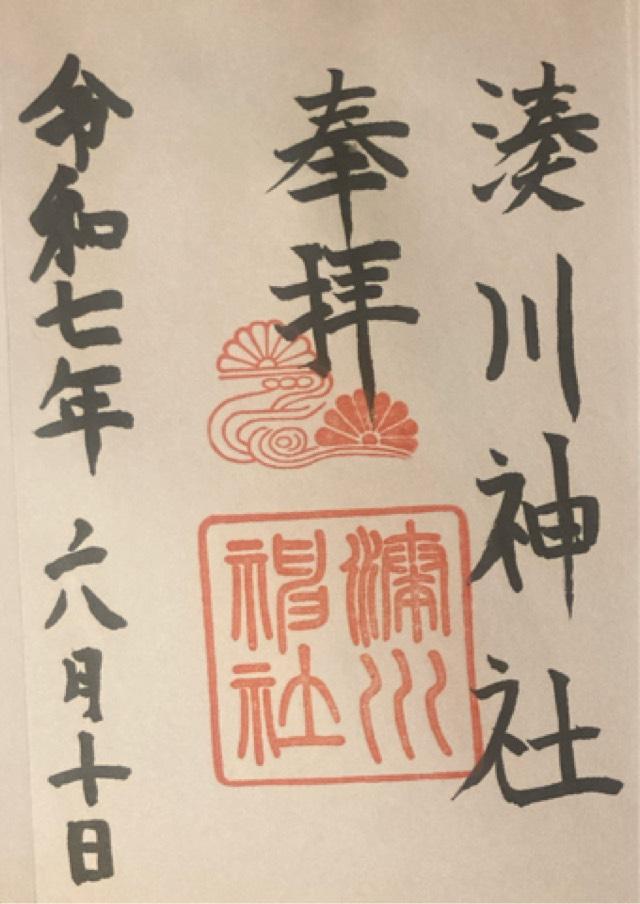 湊川神社
奉拝
湊川神社
令和七年 六月十日